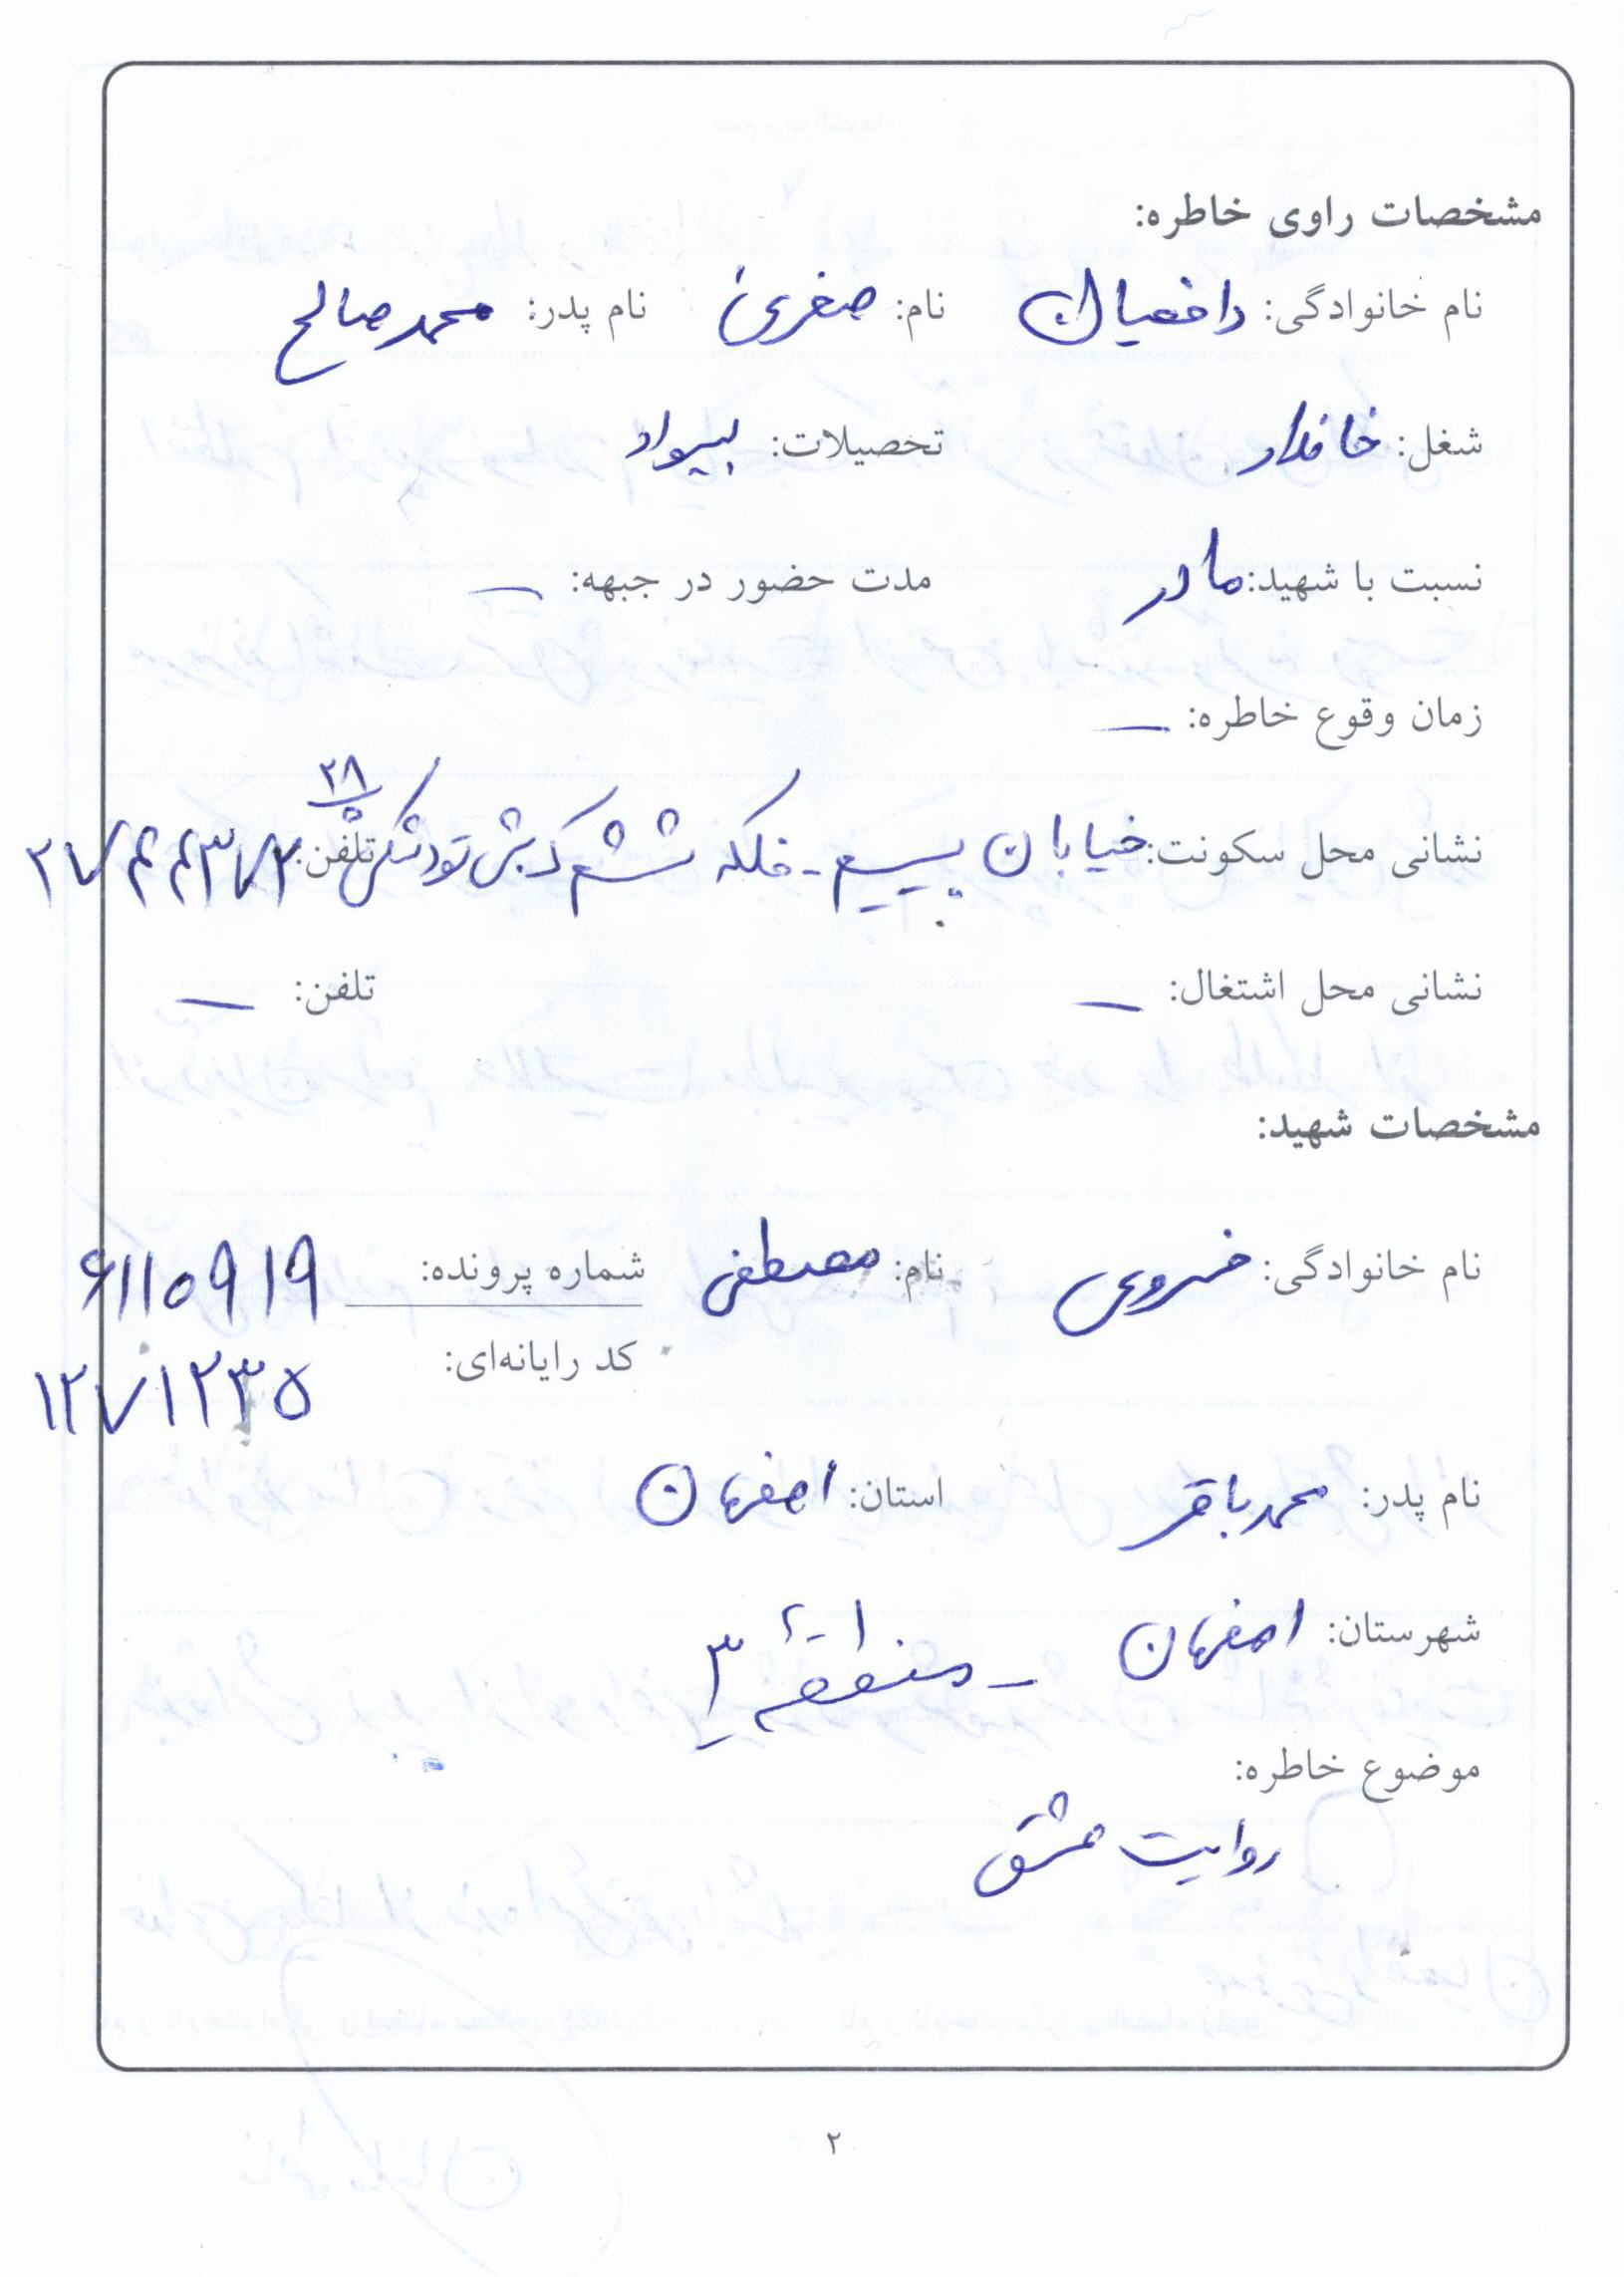 مشخصات راوی خاطره:
نام خانوادگی: رافعیان نام: صغری نام پدر: محمدصالح
شغل: خانه‌دار تحصیلات: بیسواد
نسبت با شهید: مادر مدت حضور در جبهه: —
زمان وقوع خاطره: —
نشانی محل سکونت: خیابان بسیج - فلکه ششم نبش تلفن:
نشانی محل اشتغال: — تلفن: —
مشخصات شهید:
نام خانوادگی: خسروی نام: مصطفی شماره پرونده: ۶۱۱۰۹۱۹
کد رایانه‌ای: ۱۲۷۱۲۳۵
نام پدر: محمدباقر استان: اصفهان
شهرستان: اصفهان - منطقهٔ ۳
موضوع خاطره:
روایت عشق
۲